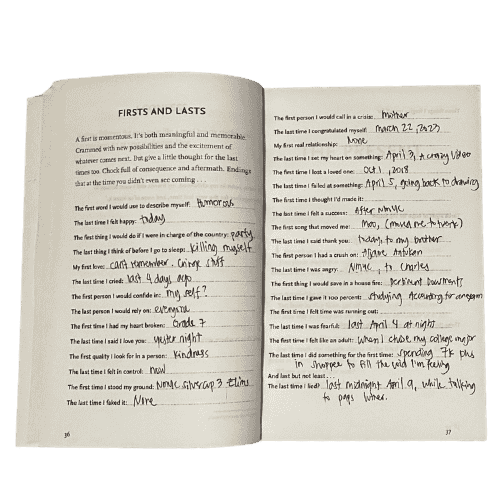 FIRSTS AND LASTS
A first is momentous. It's both meaningful and memorable.
Crammed with new possibilities and the excitement of
whatever comes next. But give a little thought for the last
times too. Chock full of consequence and aftermath. Endings
that at the time you didn't even see coming . . .
The first word I would use to describe myself: humorous
The last time I felt happy: today
The first thing I would do if I were in charge of the country: party
The last thing I think of before I go to sleep: killing myself
My first lover: can't remember. Cringe stuff
The last time I cried: last 4 days ago
The first person I would confide in: my self?
The last person I would rely on: everyone
The first time I had my heart broken: Grade 7
The last time I said I love you: yester night
The first quality I look for in a person: kindness
The last time I felt in control: now
The first time I stood my ground: NMYC 3
The last time I faked it: None
36
The first person I would call in a crisis: mother
The last time I congratulated myself: march 22, 2023
My first real relationship: None
The last time I set my heart on something: April 3, a crazy video
The first time I lost a loved one: Oct 1, 2018
The last time I failed at something: April 5, going back to drawing
The first time I thought I'd made it:
The last time I felt a success: after NMYC
The first song that moved me: moo, (moved me to work)
The last time I said thank you: today, to my brother
The first person I had a crush on:
The last time I was angry: NMYC, to Charles
The first thing I would save in a house fire: pertinent Documents
The last time I gave it 100 percent: studying Accounting for
The first time I felt time was running out:
The last time I was fearful: last April 4 at night
The first time I felt like an adult: when I chose my college major
The last time I did something for the first time: spending 7k plus
in shopee to fill the void I'm feeling
And last but not least . . .
The last time I lied? last midnight April 9, while talking
to
37